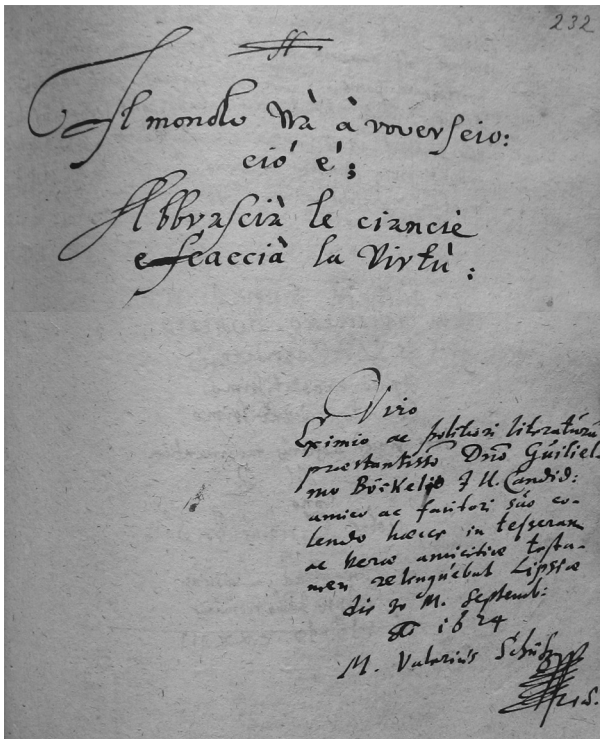 232
Il mondo và à roverscio:
ciò è;
Abbrascià le ciancie
e scaccià la Virtù:
Viro
Eximio ac politiori literatura
praestantissᵒ Dnō Guiliel-
mo Böckelio J U. Candid:
amico ac fautori suo co-
lendo haecce in tesseram
ac verae amicitiae testa-
men relinquebat Lipsiae
die 20 M. Septemb:
Aō 1624
M. Valerius Schütz